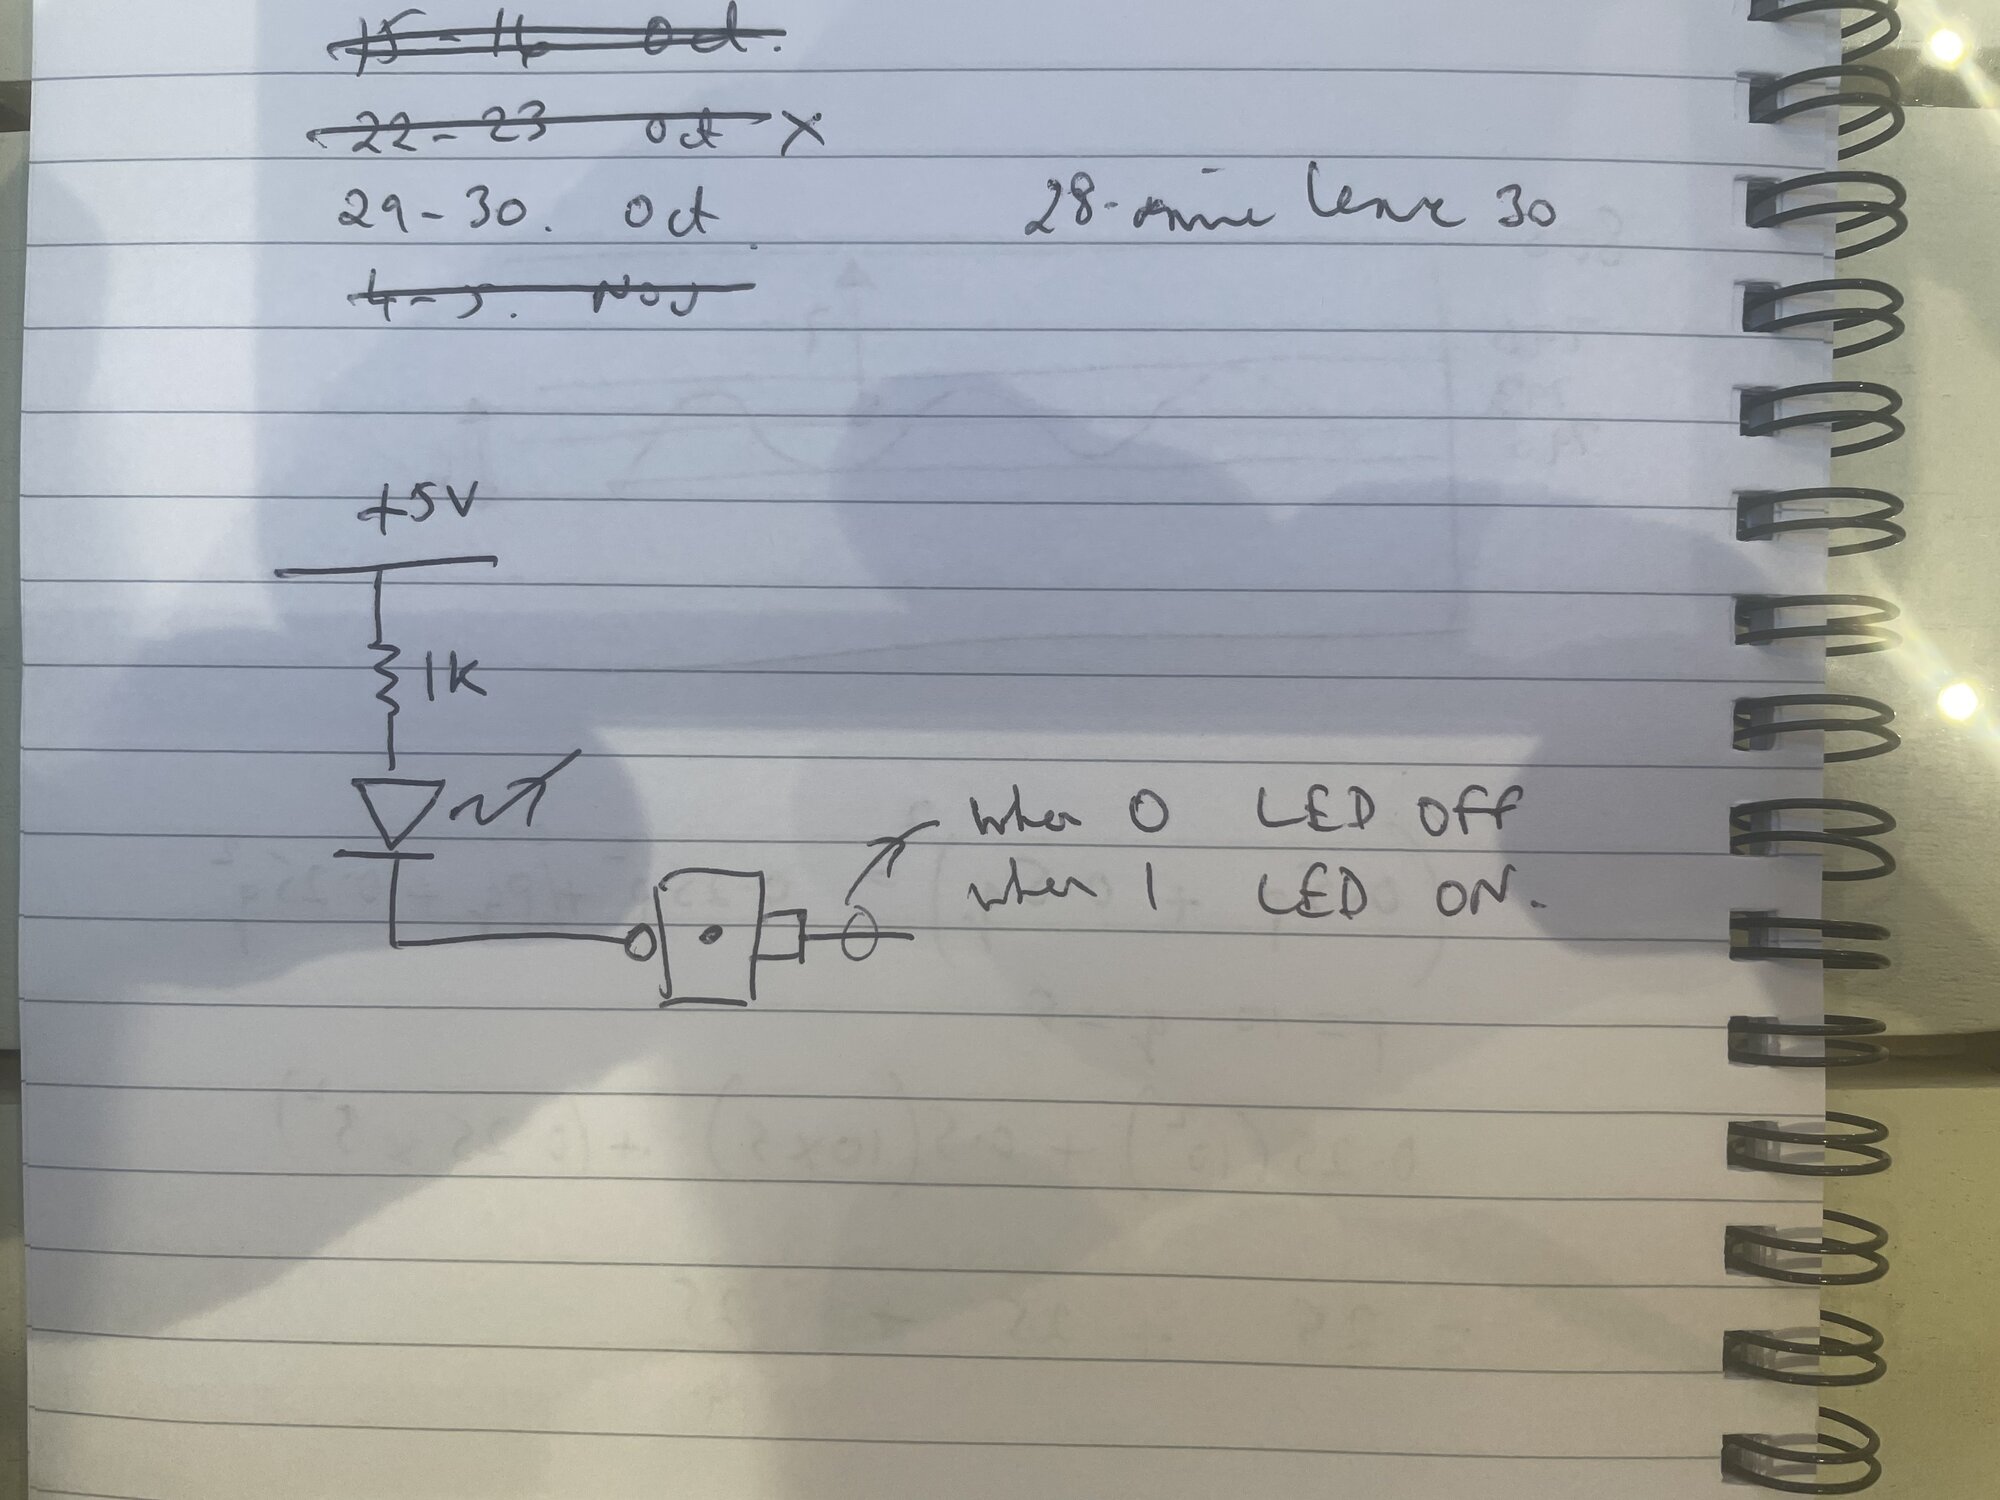 15-16 Oct.
22-23 Oct X
29-30. Oct
28- arrive leave 30
4-5. Nov
+5V
1K
when 0 LED OFF
when 1 LED ON.